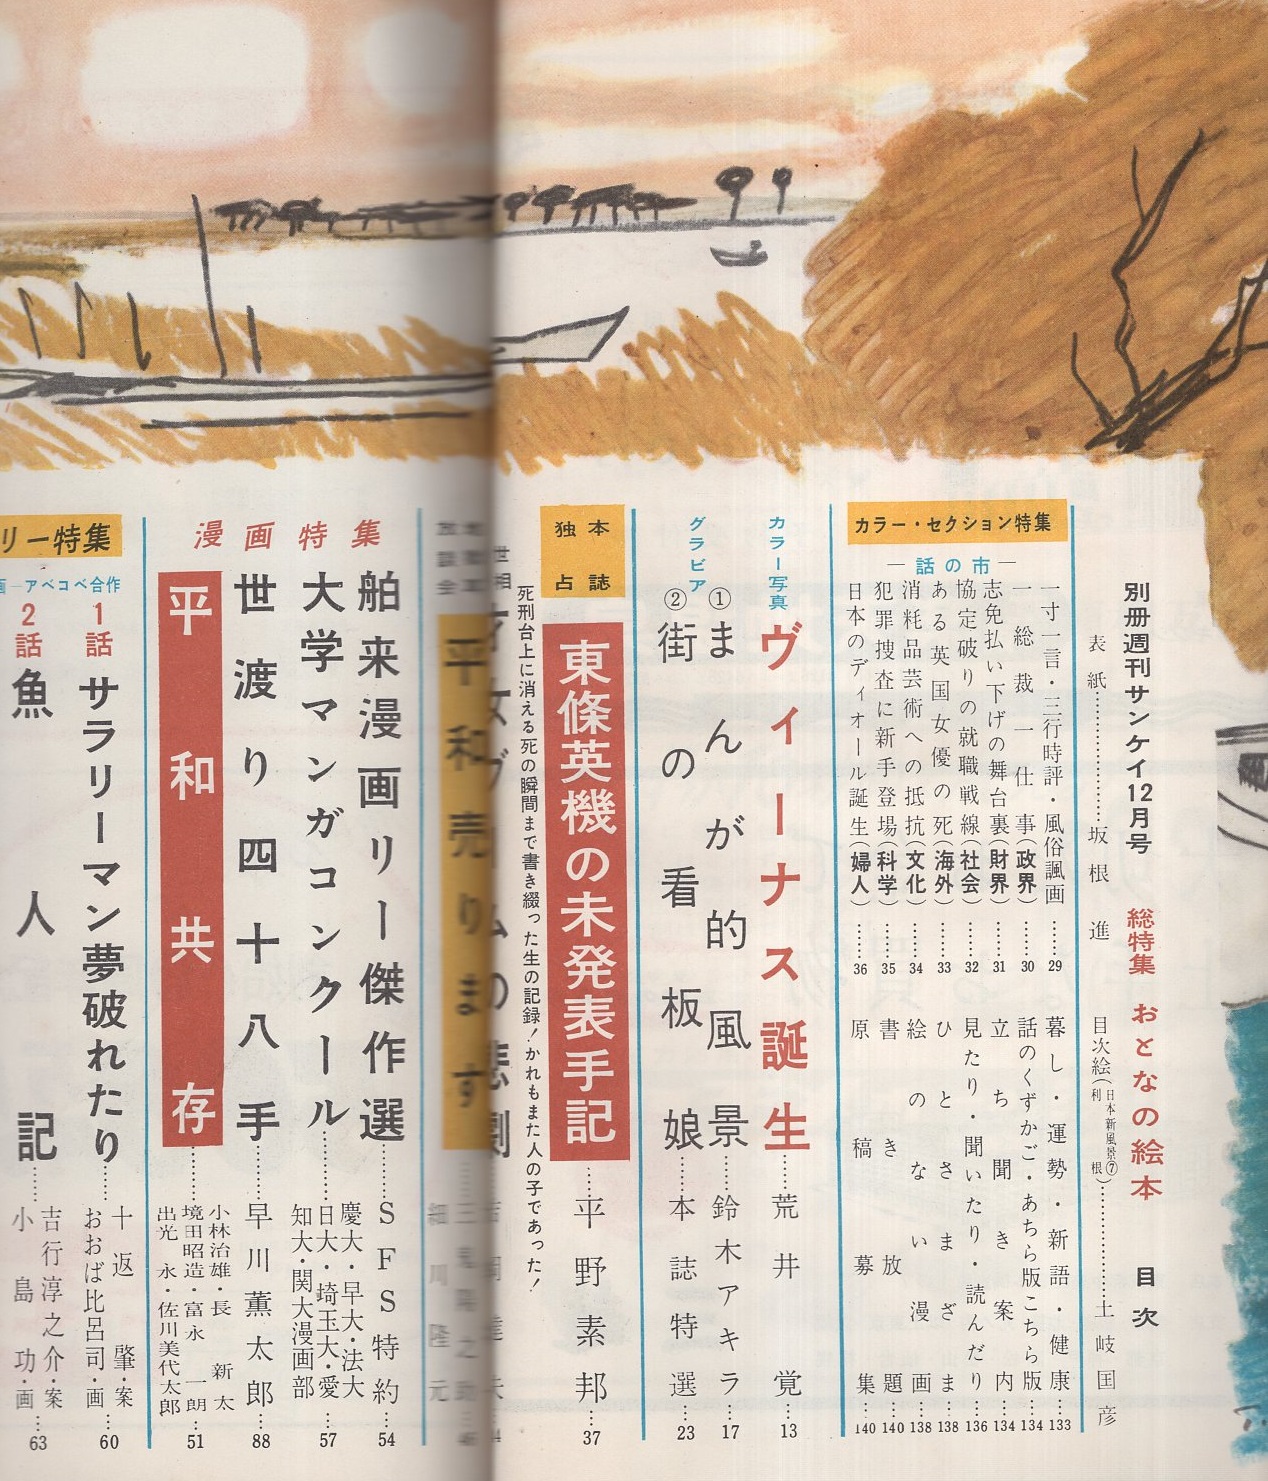 別冊週刊サンケイ12月号 総特集 おとなの絵本 目次
表紙…………坂根 進 目次絵(日本新風景⑦利根)…………土岐国彦
カラー・セクション特集
―話の市―
一寸一言・三行時評・風俗諷画……29
一総裁一仕事(政界)……30
志免払い下げの舞台裏(財界)……31
協定破りの就職戦線(社会)……32
ある英国女優の死(海外)……33
消耗品芸術への抵抗(文化)……34
犯罪捜査に新手登場(科学)……35
日本のディオール誕生(婦人)……36
暮し・運勢・新語・健康…133
話のくずかご・あちら版こちら版…134
立ち聞き案内…134
見たり・聞いたり・読んだり…136
ひとさまざま…138
絵のない漫画…138
書き放題…140
原稿募集…140
カラー写真
ヴィーナス誕生……荒井 覚…13
グラビア
①まんが的風景……鈴木アキラ…17
②街の看板娘……本誌特選…23
本誌独占
東條英機の未発表手記……平野素邦…37
死刑台上に消える死の瞬間まで書き綴った生の記録!かれもまた人の子であった!
世相
平和売ります
細川隆元
漫画特集
舶来漫画リー傑作選……SFS特約…54
大学マンガコンクール……慶大・早大・法大
日大・埼玉大・愛
知大・関大漫画部…57
世渡り四十八手……早川薫太郎…88
平和共存……小林治雄・長 新太
境田昭造・富永一朗
出光 永・佐川美代太郎…51
リー特集
画―アベコベ合作
1話 サラリーマン夢破れたり……十返 肇・案
おおば比呂司・画…60
2話 魚人記……吉行淳之介・案
小島 功・画…63